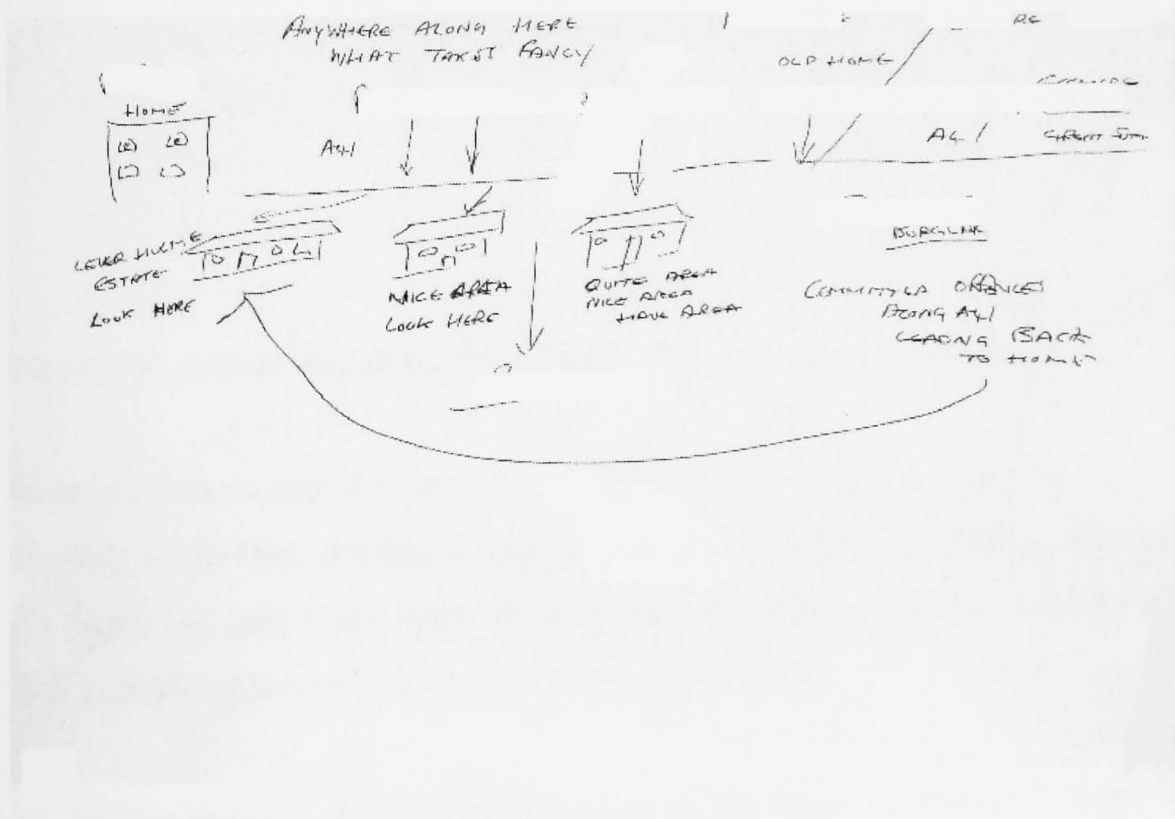 ANYWHERE ALONG HERE
WHAT TAKES FANCY
OLD HOME
HOME
A41
A41
LEVER HULME
ESTATE
LOOK HERE
NICE AREA
LOOK HERE
QUITE AREA
NICE AREA
HAVE AREA
BURGLAR
COMMITTED OFFENCES
ALONG A41
LEADING BACK
TO HOME